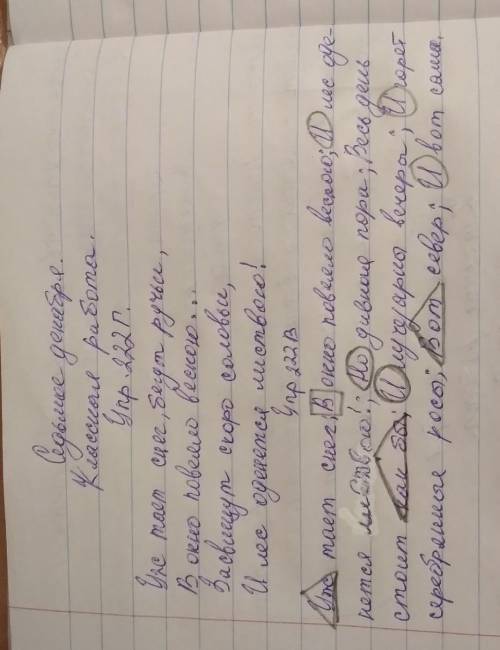 Седьмое декабря.
Классная работа.
Упр 222Г.
Уже тает снег, бегут ручьи,
В окно повеяло весною...
Засвищут скоро соловьи,
И лес оденется листвою!
Упр 222В
Уже тает снег; В окно повеяло весною; И лес оде-
нется листвою!; Но дивная пора; Весь день
стоит как бы; И лучезарны вечера; И горят
серебранные росы; Вот север; И вот сама.